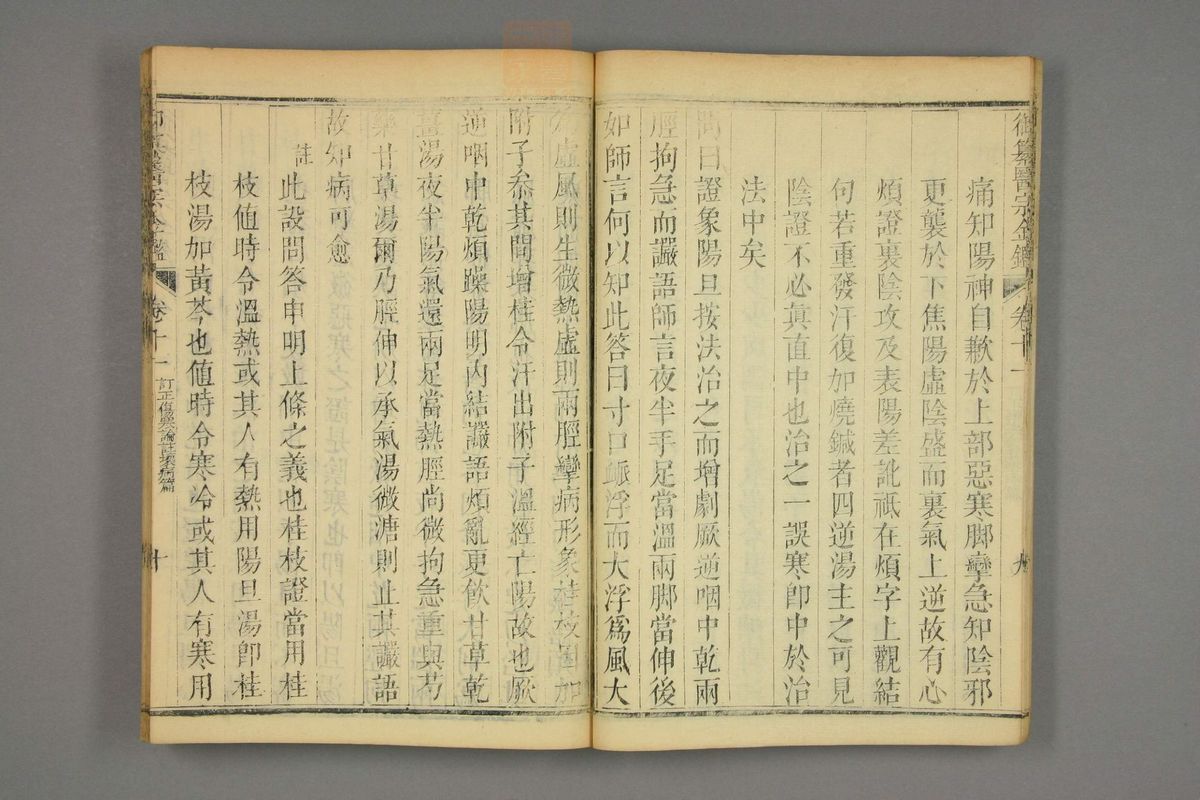 御纂醫宗金鑑 卷十一 九
痛知陽神自歉於上部惡寒脚攣急知陰邪
更襲於下焦陽虛陰盛而裏氣上逆故有心
煩證裏陰攻及表陽差訛祇在煩字上觀結
句若重發汗復加燒鍼者四逆湯主之可見
陰證不必眞直中也治之一誤寒卽中於治
法中矣
問曰證象陽旦按法治之而增劇厥逆咽中乾兩
脛拘急而讝語師言夜半手足當溫兩脚當伸後
如師言何以知此答曰寸口脈浮而大浮爲風大
爲虛風則生微熱虛則兩脛攣病形象桂枝因加
附子叅其間增桂令汗出附子溫經亡陽故也厥
逆咽中乾煩躁陽明內結讝語煩亂更飮甘草乾
薑湯夜半陽氣還兩足當熱脛尚微拘急重與芍
藥甘草湯爾乃脛伸以承氣湯微溏則止其讝語
故知病可愈
註此設問答申明上條之義也桂枝證當用桂
枝值時令溫熱或其人有熱用陽旦湯卽桂
枝湯加黃芩也值時令寒冷或其人有寒用
御纂醫宗金鑑 卷十一 訂正傷寒論註壞病篇 十